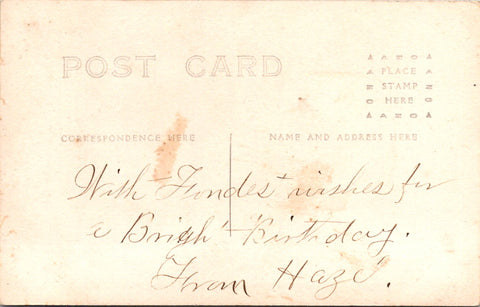 POST CARD
AZO
PLACE
STAMP
HERE
AZO
CORRESPONDENCE HERE
NAME AND ADDRESS HERE
With Fondest wishes for
a Bright Birthday.
From Hazel.